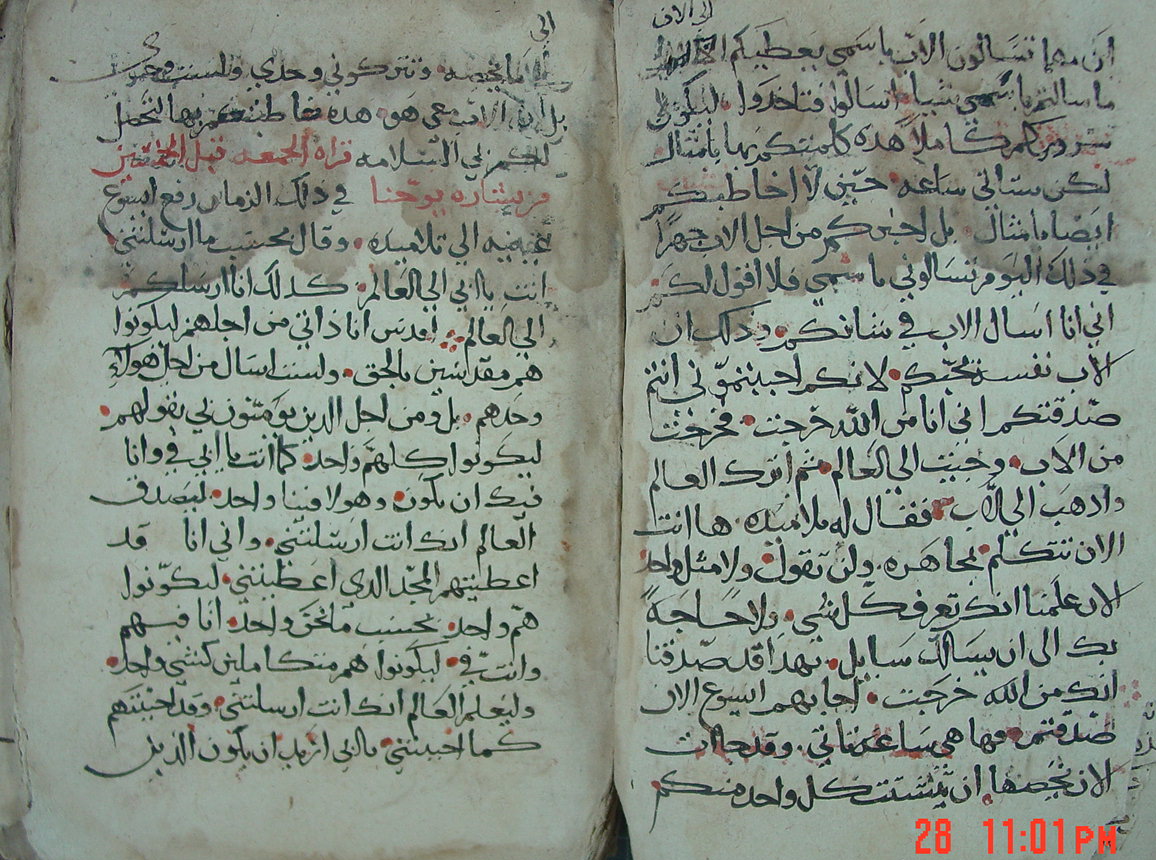 الى الان
ان مهما تسالون الاب باسمي يعطيكم
ما سالتم باسمي شيا اسالوا فتاخدوا ليكون
سروركم كاملا هده كلمتكم بها بامثال
لكن ستاتي ساعه حين لا اخاطبكم
ايضا بامثال بل اخبركم من اجل الاب جهرا
في دلك اليوم تسالوني باسمي فلا اقول لكم
اني انا اسال الاب في شانكم ودلك ان
الاب نفسه يحبكم لانكم احببتموني انتم
صدقتكم اني انا من الله خرجت فخرجت
من الاب وجيت الي العالم ثم اترك العالم
وادهب الي الاب فقال له تلاميده ها انت
الان تتكلم مجاهره ولن تقول ولا مثل واحد
الان علمنا انك تعرف كل شي ولا حاجة
بك الى ان يسالك سايل بهدا قد صدقنا
انك من الله خرجت اجابهم ايسوع الان
صدقتم فها هي ساعه تاتي وقد جات
الان بحصها ان يتشتت كل واحد منكم
الى
الي ما يخصه وتتركوني وحدي ولست وحدي
بل ان الاب معي هو هده خاطبتكم بها لتحصل
لكم بي السلامه قراه الجمعه قبل
من بشاره يوحنا في دلك الزمان رفع ايسوع
عينيه الي تلاميده وقال بحسب ما ارسلتني
انت يا ابي الي العالم كدلك انا ارسلكم
الي العالم اقدس انا داتي من اجلهم ليكونوا
هم مقدسين بالحق ولست اسال من اجل هولاي
وحدهم بل ومن اجل الدين يومنون بي بقولهم
ليكونوا كلهم واحد كما انت يا ابي في وانا
فيك ان يكون وهولا فينا واحد ليصدق
العالم انك انت ارسلتني واني انا قد
اعطيتهم المجد الدي اعطيتني ليكونوا
هم واحد بحسب ما نحن واحد انا فيهم
وانت في ليكونوا هم متكاملين كشي واحد
وليعلم العالم انك انت ارسلتني وقد احببتهم
كما احببتني يا ابي اريد ان يكون الدين
28 11:01 PM